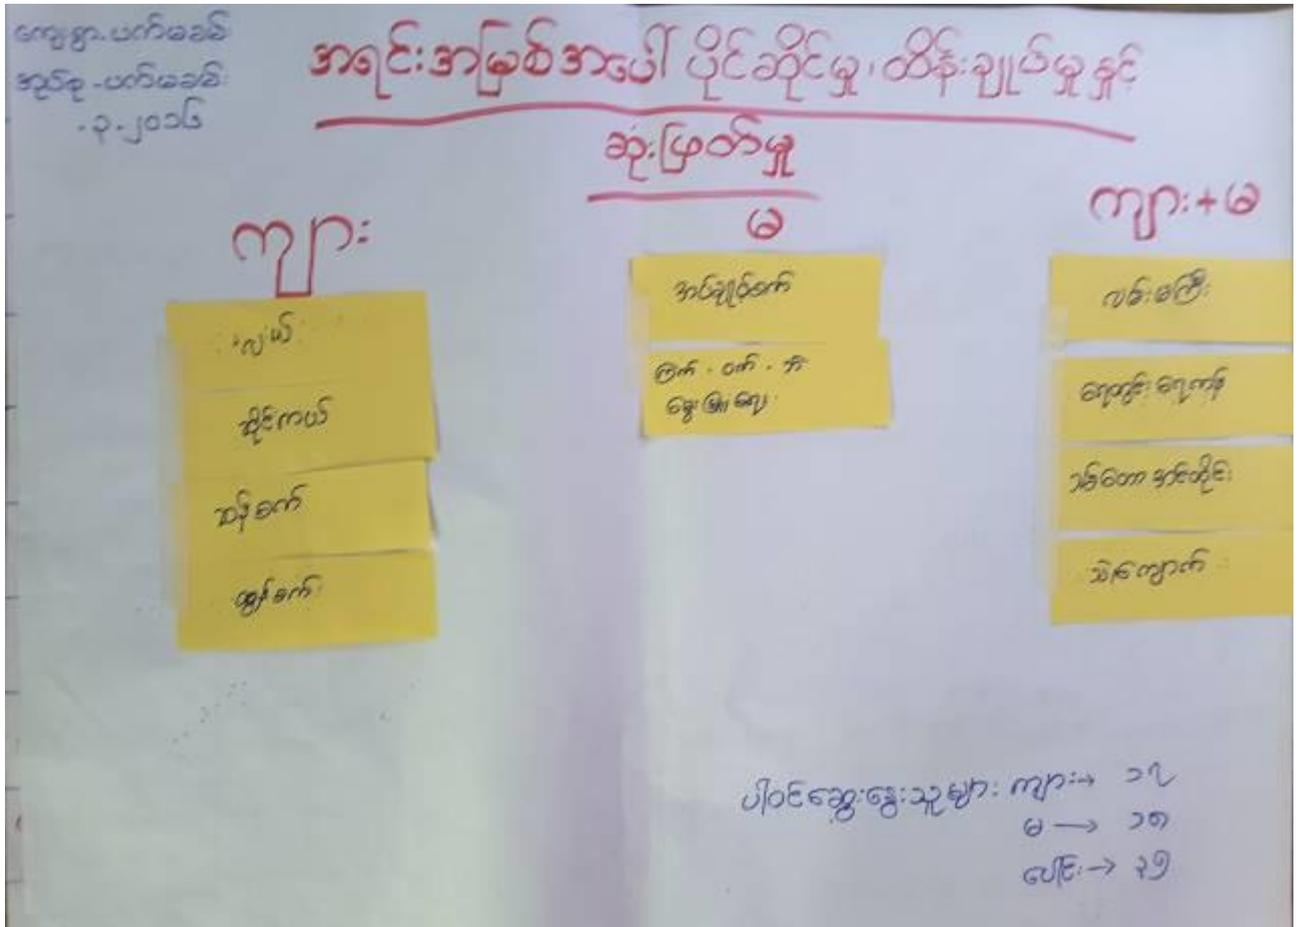 ကျေးရွာ-ပက်မခမ်း
အုပ်စု-ပက်မခမ်း
.၃.၂၀၁၆
အရင်းအမြစ်အပေါ် ပိုင်ဆိုင်မှု၊ ထိန်းချုပ်မှုနှင့်
ဆုံးဖြတ်မှု
ကျား
လယ်
ဆိုင်ကယ်
ဆန်စက်
ထွန်စက်
မ
အပ်ချုပ်စက်
ကြက်၊ ဝက်၊ ဘဲ
မွေးမြူရေး
ကျား+မ
လမ်းမကြီး
ရေတွင်း ရေကန်
သစ်တော
သဲကျောက်
ပါဝင်ဆွေးနွေးသူများ ကျား→ ၁၇
မ → ၁၈
ပေါင်း→ ၃၅